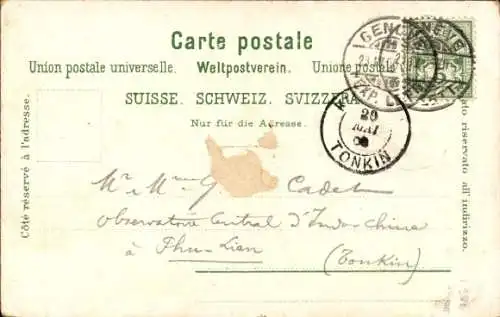 Carte postale
Union postale universelle. Weltpostverein. Unione postale
SUISSE. SCHWEIZ. SVIZZERA
Nur für die Adresse.
Côté réservé à l'adresse.
riservato all' indirizzo.
GENÈVE
20
MAI
TONKIN
Mr Mme G Cadet
Observatoire Central d'Indo-Chine
à Phu-Lien
(Tonkin)